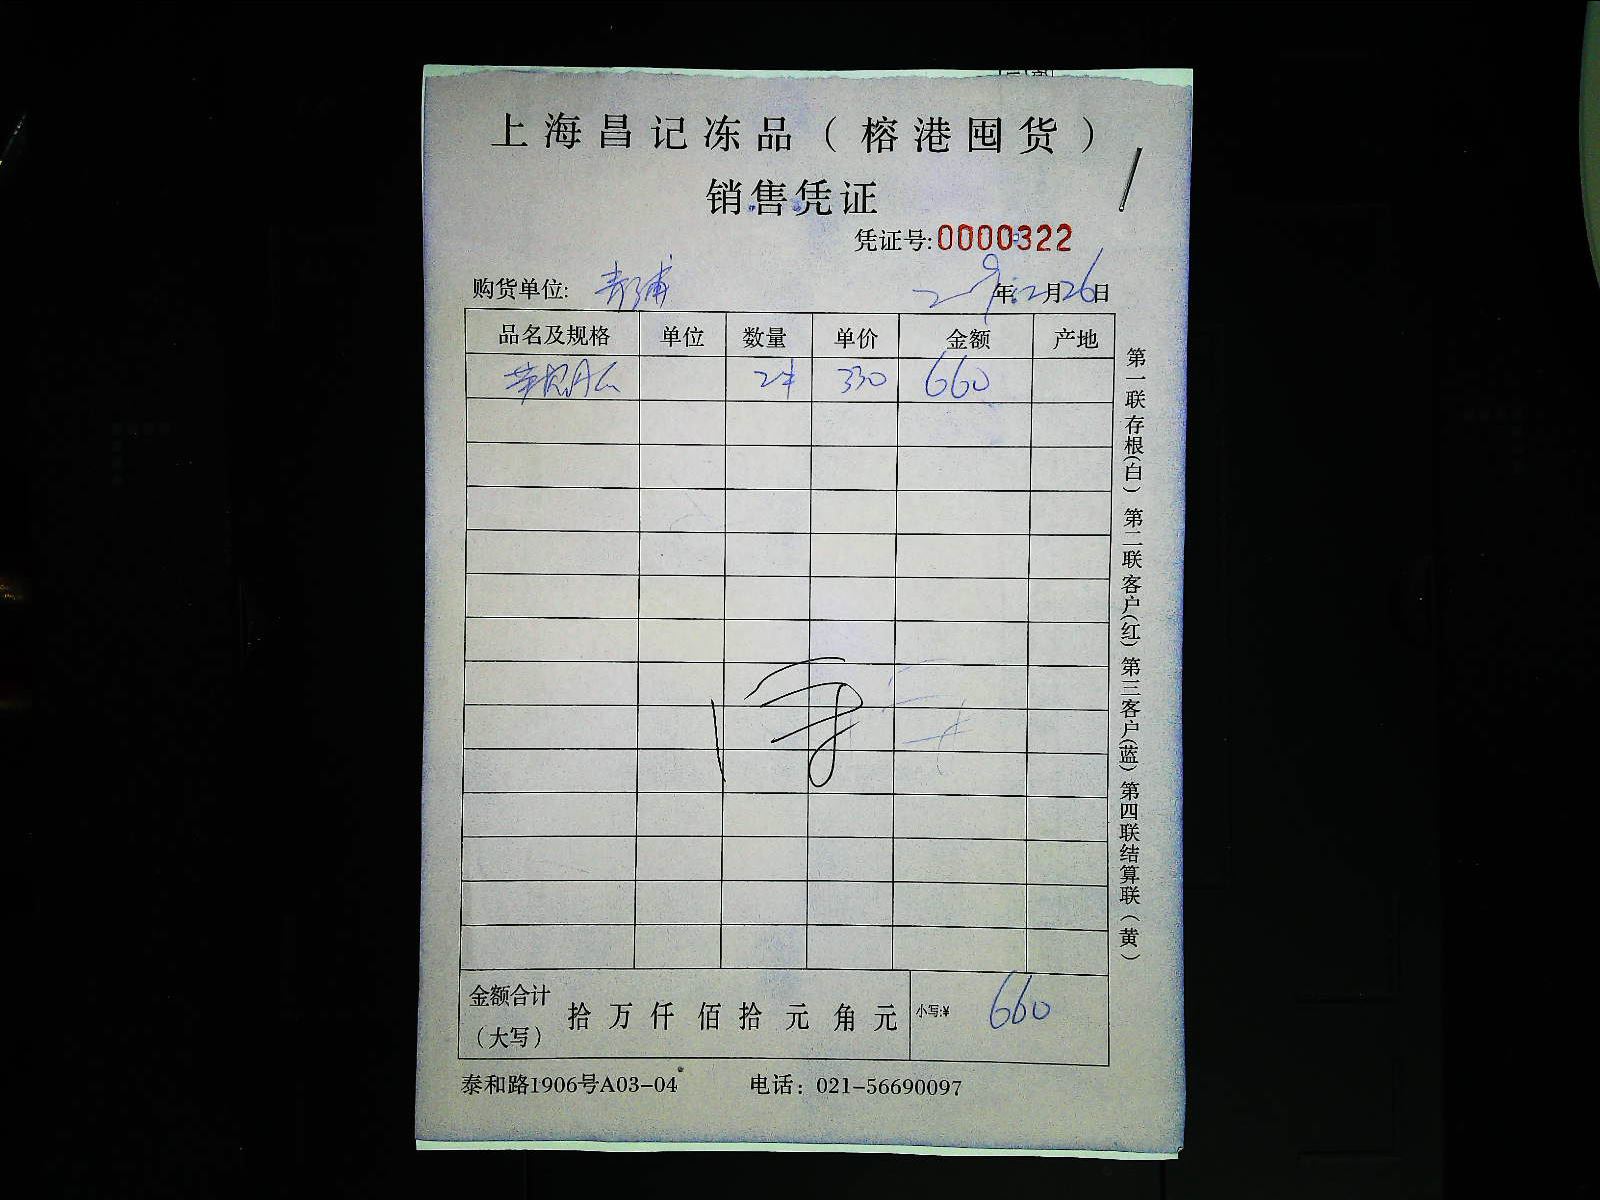 上海昌记冻品（榕港囤货）
销售凭证
凭证号:0000322
购货单位: 青浦 年12月26日
品名及规格 单位 数量 单价 金额 产地
2件 330 660
金额合计（大写） 拾 万 仟 佰 拾 元 角 元 小写:¥ 660
泰和路1906号A03-04 电话：021-56690097
第一联存根(白) 第二联客户(红) 第三客户(蓝) 第四联结算联(黄)